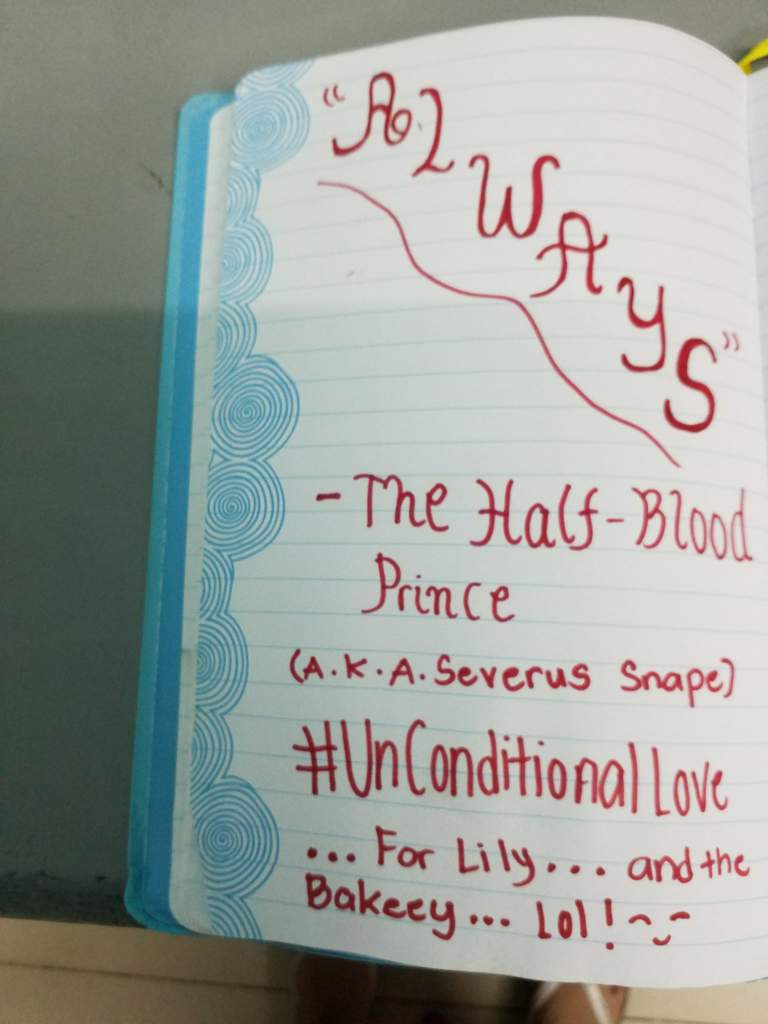 "ALWAYS"
- The Half-Blood
Prince
(A.K.A. Severus Snape)
#UnConditional Love
... For Lily... and the
Bakeey... lol! ~◡~